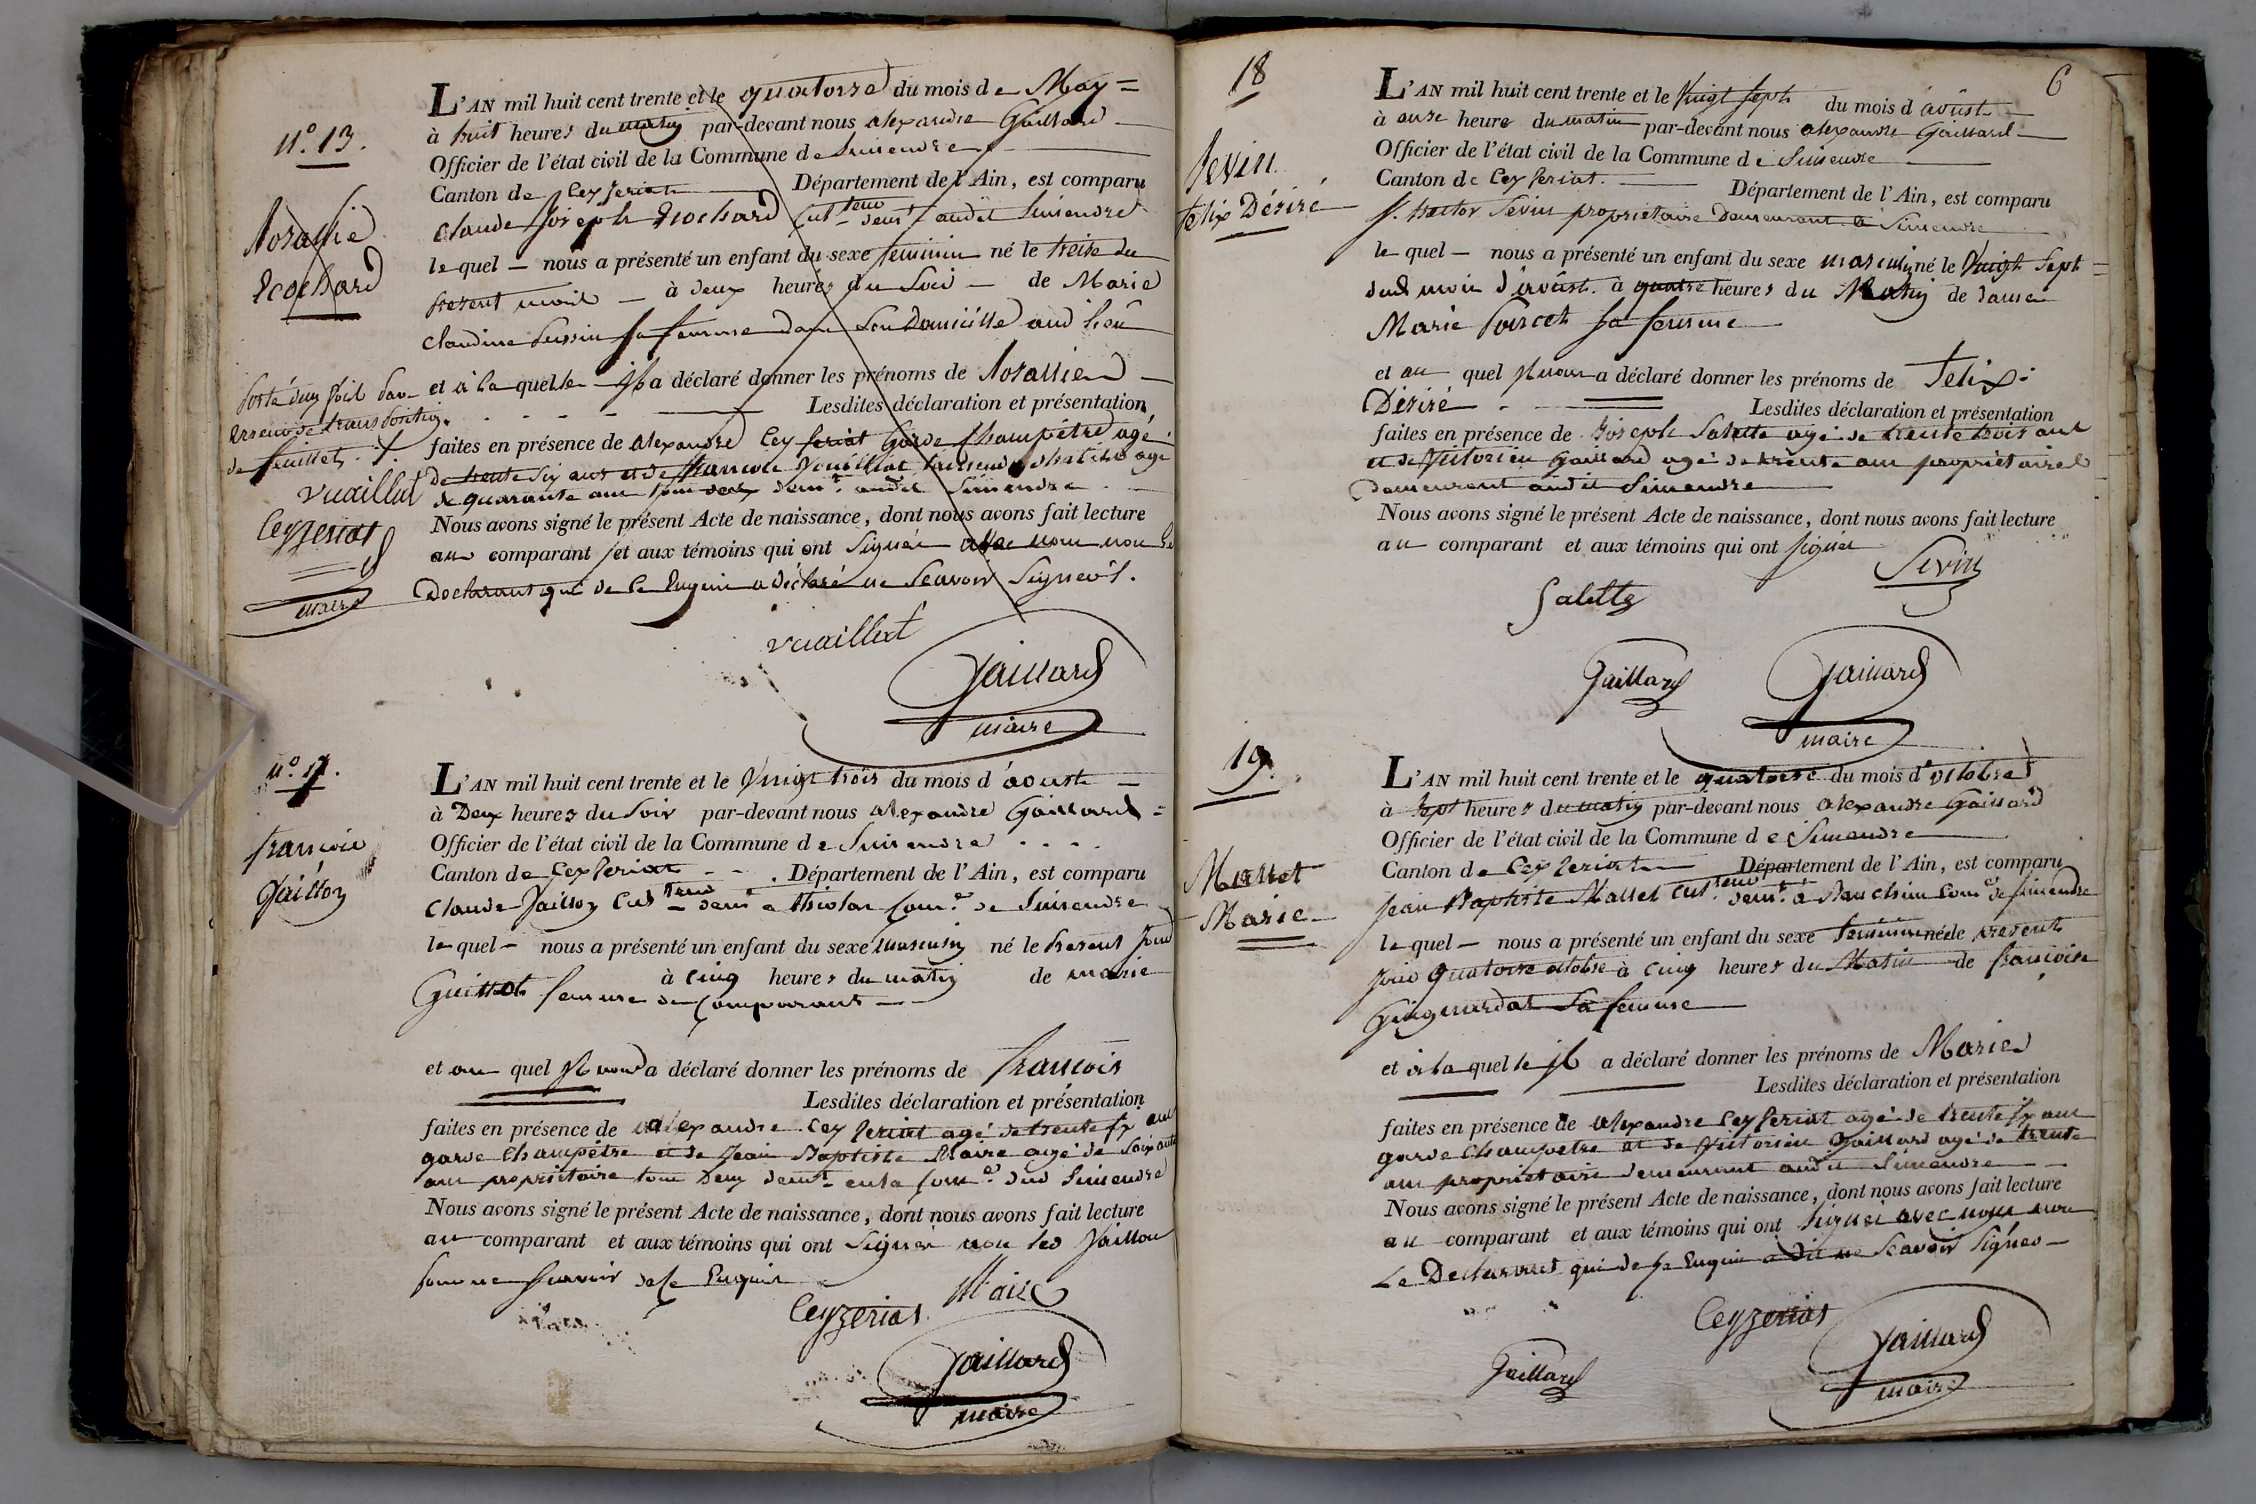 N.° 13.
Rosallie
Ecochard
L'AN mil huit cent trente et le quatorze du mois de May =
à huit heures du matin par-devant nous alexandre Gaillard
Officier de l'état civil de la Commune de Simandre
Canton de Ceyzeriat Département de l'Ain, est comparu
Claude Joseph Ecochard Cultteur demt audit Simandre
le quel — nous a présenté un enfant du sexe feminin né le treize du
present mois — à deux heures du Soir — de Marie
Claudine sa femme dans Son Domicille aud lieu
et à la quelle il a déclaré donner les prénoms de Rosallie
Lesdites déclaration et présentation,
faites en présence de alexandre Ceyzeriat Garde Champetre agé
de trente six ans et de francois Vuaillat agé
de quarante ans tous deux demt audit Simandre
Nous avons signé le présent Acte de naissance, dont nous avons fait lecture
au comparant et aux témoins qui ont Signés avec nous non le
Déclarant qui de ce Enquis a déclaré ne Scavoir Signer.
Porté d'un foil par
erreur de transposition
de feuillet
vuaillat
Ceyzeriat
maire
vuaillat
Gaillard
maire
N.° 17.
francois
Jaillon
L'AN mil huit cent trente et le Vingt trois du mois d'aoust —
à Deux heures du Soir par-devant nous alexandre Gaillard =
Officier de l'état civil de la Commune de Simandre
Canton de Ceyzeriat Département de l'Ain, est comparu
Claude Jaillon Cultteur demt a thiolas Com.e de Simandre
le quel — nous a présenté un enfant du sexe masculin né le present Jour
à cinq heures du matin de marie
Guillot femme du Comparant
et au quel il nous a déclaré donner les prénoms de francois
Lesdites déclaration et présentation
faites en présence de alexandre Ceyzeriat agé de trente six ans
garde Champêtre et de Jean Baptiste Maire agé de Soixante
ans propriétaire tous Deux demt en la Com.e dud Simandre
Nous avons signé le présent Acte de naissance, dont nous avons fait lecture
au comparant et aux témoins qui ont Signer non led Jaillon
pour ne Scavoir de ce Enquis
Maire
Ceyzeriat
Gaillard
maire
6
18
Sevin
felix Désiré
L'AN mil huit cent trente et le Vingt Sept du mois d'aoust
à onze heure du matin par-devant nous alexandre Gaillard
Officier de l'état civil de la Commune de Simandre
Canton de Ceyzeriat. Département de l'Ain, est comparu
hector Sevin propriétaire Demeurant a Simandre
le quel — nous a présenté un enfant du sexe masculin né le Vingt Sept =
dud mois d'avoust à quatre heures du Matin de dame
Marie Poncet Sa femme
et au quel il nous a déclaré donner les prénoms de Felix
Désiré Lesdites déclaration et présentation
faites en présence de Joseph Salette agé de trente trois ans
et de Victorien Gaillard agé de trente ans propriétaires
demeurant audit Simandre
Nous avons signé le présent Acte de naissance, dont nous avons fait lecture
au comparant et aux témoins qui ont Signer
Sevin
Salette
Gaillard
Gaillard
maire
19.
Mallet
Marie
L'AN mil huit cent trente et le quatorze du mois d'octobre
à Sept heures du matin par-devant nous alexandre Gaillard
Officier de l'état civil de la Commune de Simandre
Canton de Ceyzeriat Département de l'Ain, est comparu
Jean Baptiste Mallet Cultteur demt à Com.e de Simandre
le quel — nous a présenté un enfant du sexe feminin née le present
Jour quatorze octobre à cinq heures du Matin de francoise
Guignardat Sa femme
et à la quelle il a déclaré donner les prénoms de Marie
Lesdites déclaration et présentation
faites en présence de alexandre Ceyzeriat agé de trente six ans
garde Champetre et de Victorien Gaillard agé de trente
ans propriétaire demeurant audit Simandre
Nous avons signé le présent Acte de naissance, dont nous avons fait lecture
au comparant et aux témoins qui ont Signer avec nous non
Le Déclarant qui de ce Enquis a dit ne Scavoir Signer
Ceyzeriat
Gaillard
Gaillard
maire